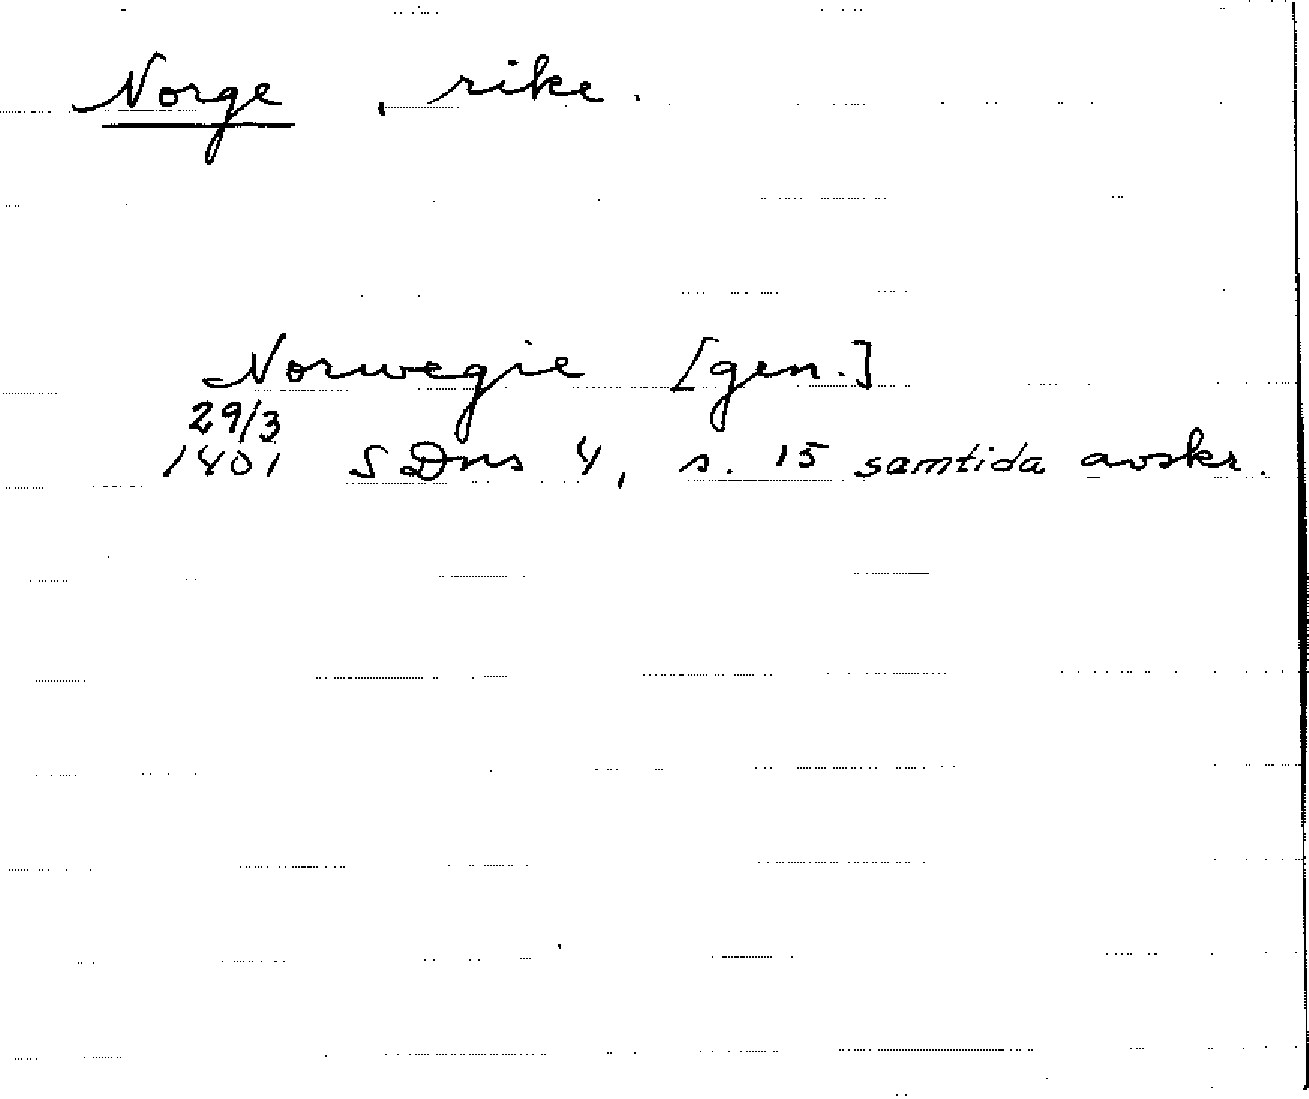 Norge, rike.
Norwegie [gen.]
29/3
1401 SDns 4, s. 15 samtida avskr.